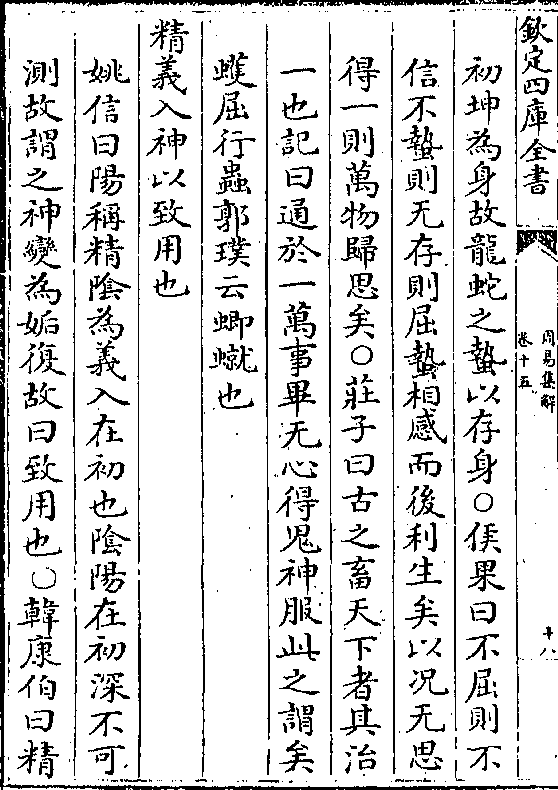 欽定四庫全書
周易集解
卷十五
十八
初坤為身故龍蛇之蟄以存身○侯果曰不屈則不
信不蟄則无存則屈蟄相感而後利生矣以况无思
得一則萬物歸思矣○莊子曰古之畜天下者其治
一也記曰通於一萬事畢无心得鬼神服此之謂矣
蠖屈行蟲郭璞云蝍𧐐也
精義入神以致用也
姚信曰陽稱精陰為義入在初也陰陽在初深不可
測故謂之神變為姤復故曰致用也○韓康伯曰精